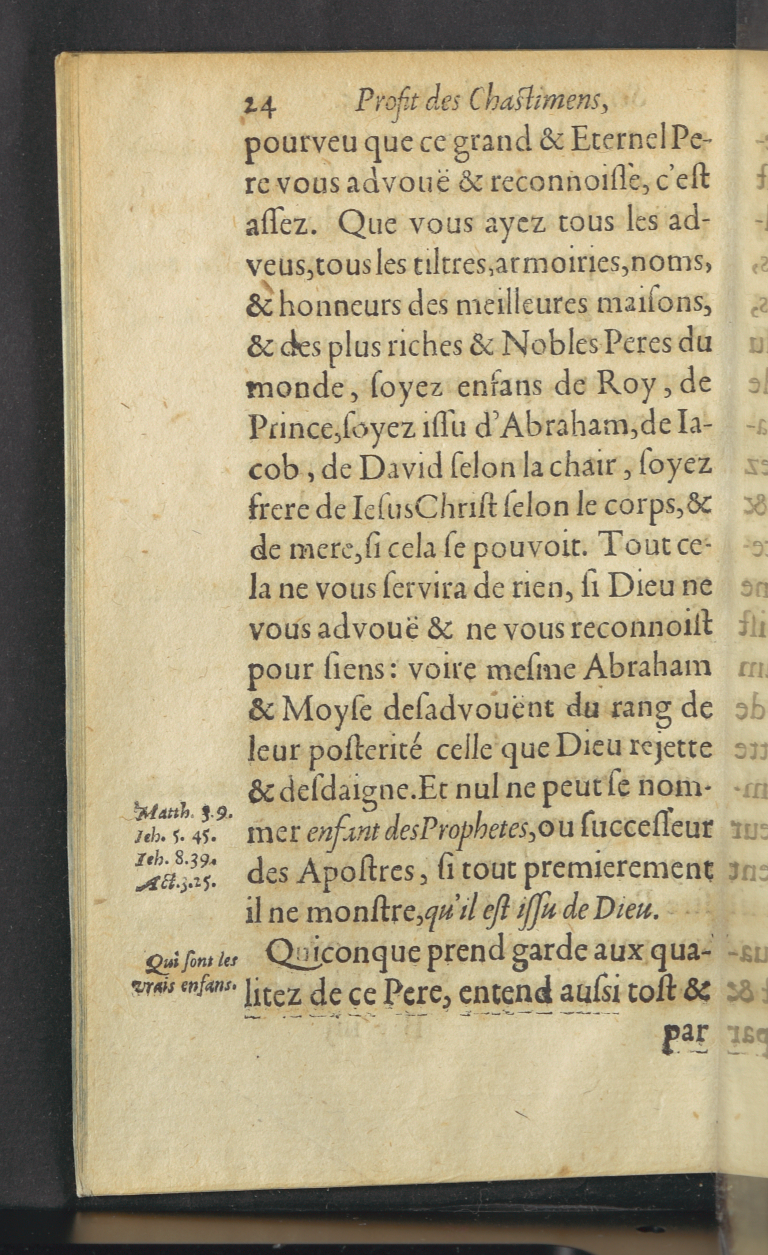 24 Profit des Chaſtimens,
pourveu que ce grand & Eternel Pe-
re vous advouë & reconnoiſſe, c'eſt
aſſez. Que vous ayez tous les ad-
veus, tous les tiltres, armoiries, noms,
& honneurs des meilleures maiſons,
& des plus riches & Nobles Peres du
monde, ſoyez enfans de Roy, de
Prince, ſoyez iſſu d'Abraham, de Ia-
cob, de David ſelon la chair, ſoyez
frere de IeſusChriſt ſelon le corps, &
de mere, ſi cela ſe pouvoit. Tout ce-
la ne vous ſervira de rien, ſi Dieu ne
vous advouë & ne vous reconnoiſt
pour ſiens: voire meſme Abraham
& Moyſe deſadvouënt du rang de
leur poſterité celle que Dieu rejette
& deſdaigne. Et nul ne peut ſe nom-
mer enfant des Prophetes, ou ſucceſſeur
des Apoſtres, ſi tout premierement
il ne monſtre, qu'il eſt iſſu de Dieu.
Matth. 3.9.
Ieh. 5. 45.
Ieh. 8.39.
Act.3.25.
Quiconque prend garde aux qua-
litez de ce Pere, entend auſsi toſt &
Qui ſont les
vrais enfans.
par